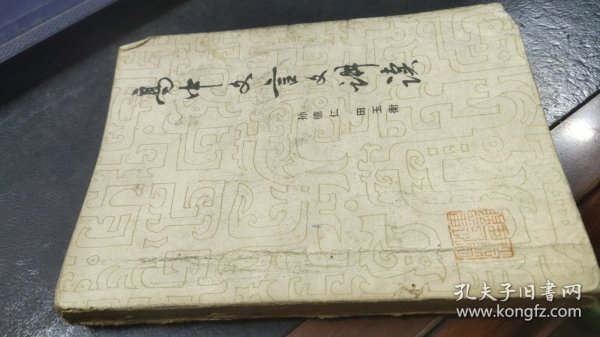 高中文言文译读
孙德仁 田玉衡
孔夫子旧书网
www.kongfz.com